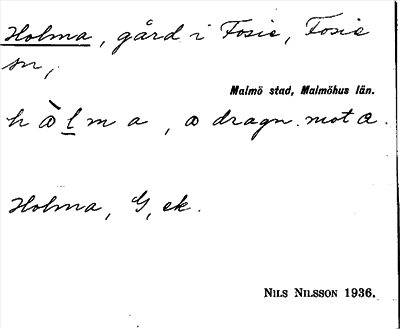 Holma, gård i Fosie, Fosie
sn,
Malmö stad, Malmöhus län.
hòlma, o dragn. mot a.
Holma, G, ek.
NILS NILSSON 1936.